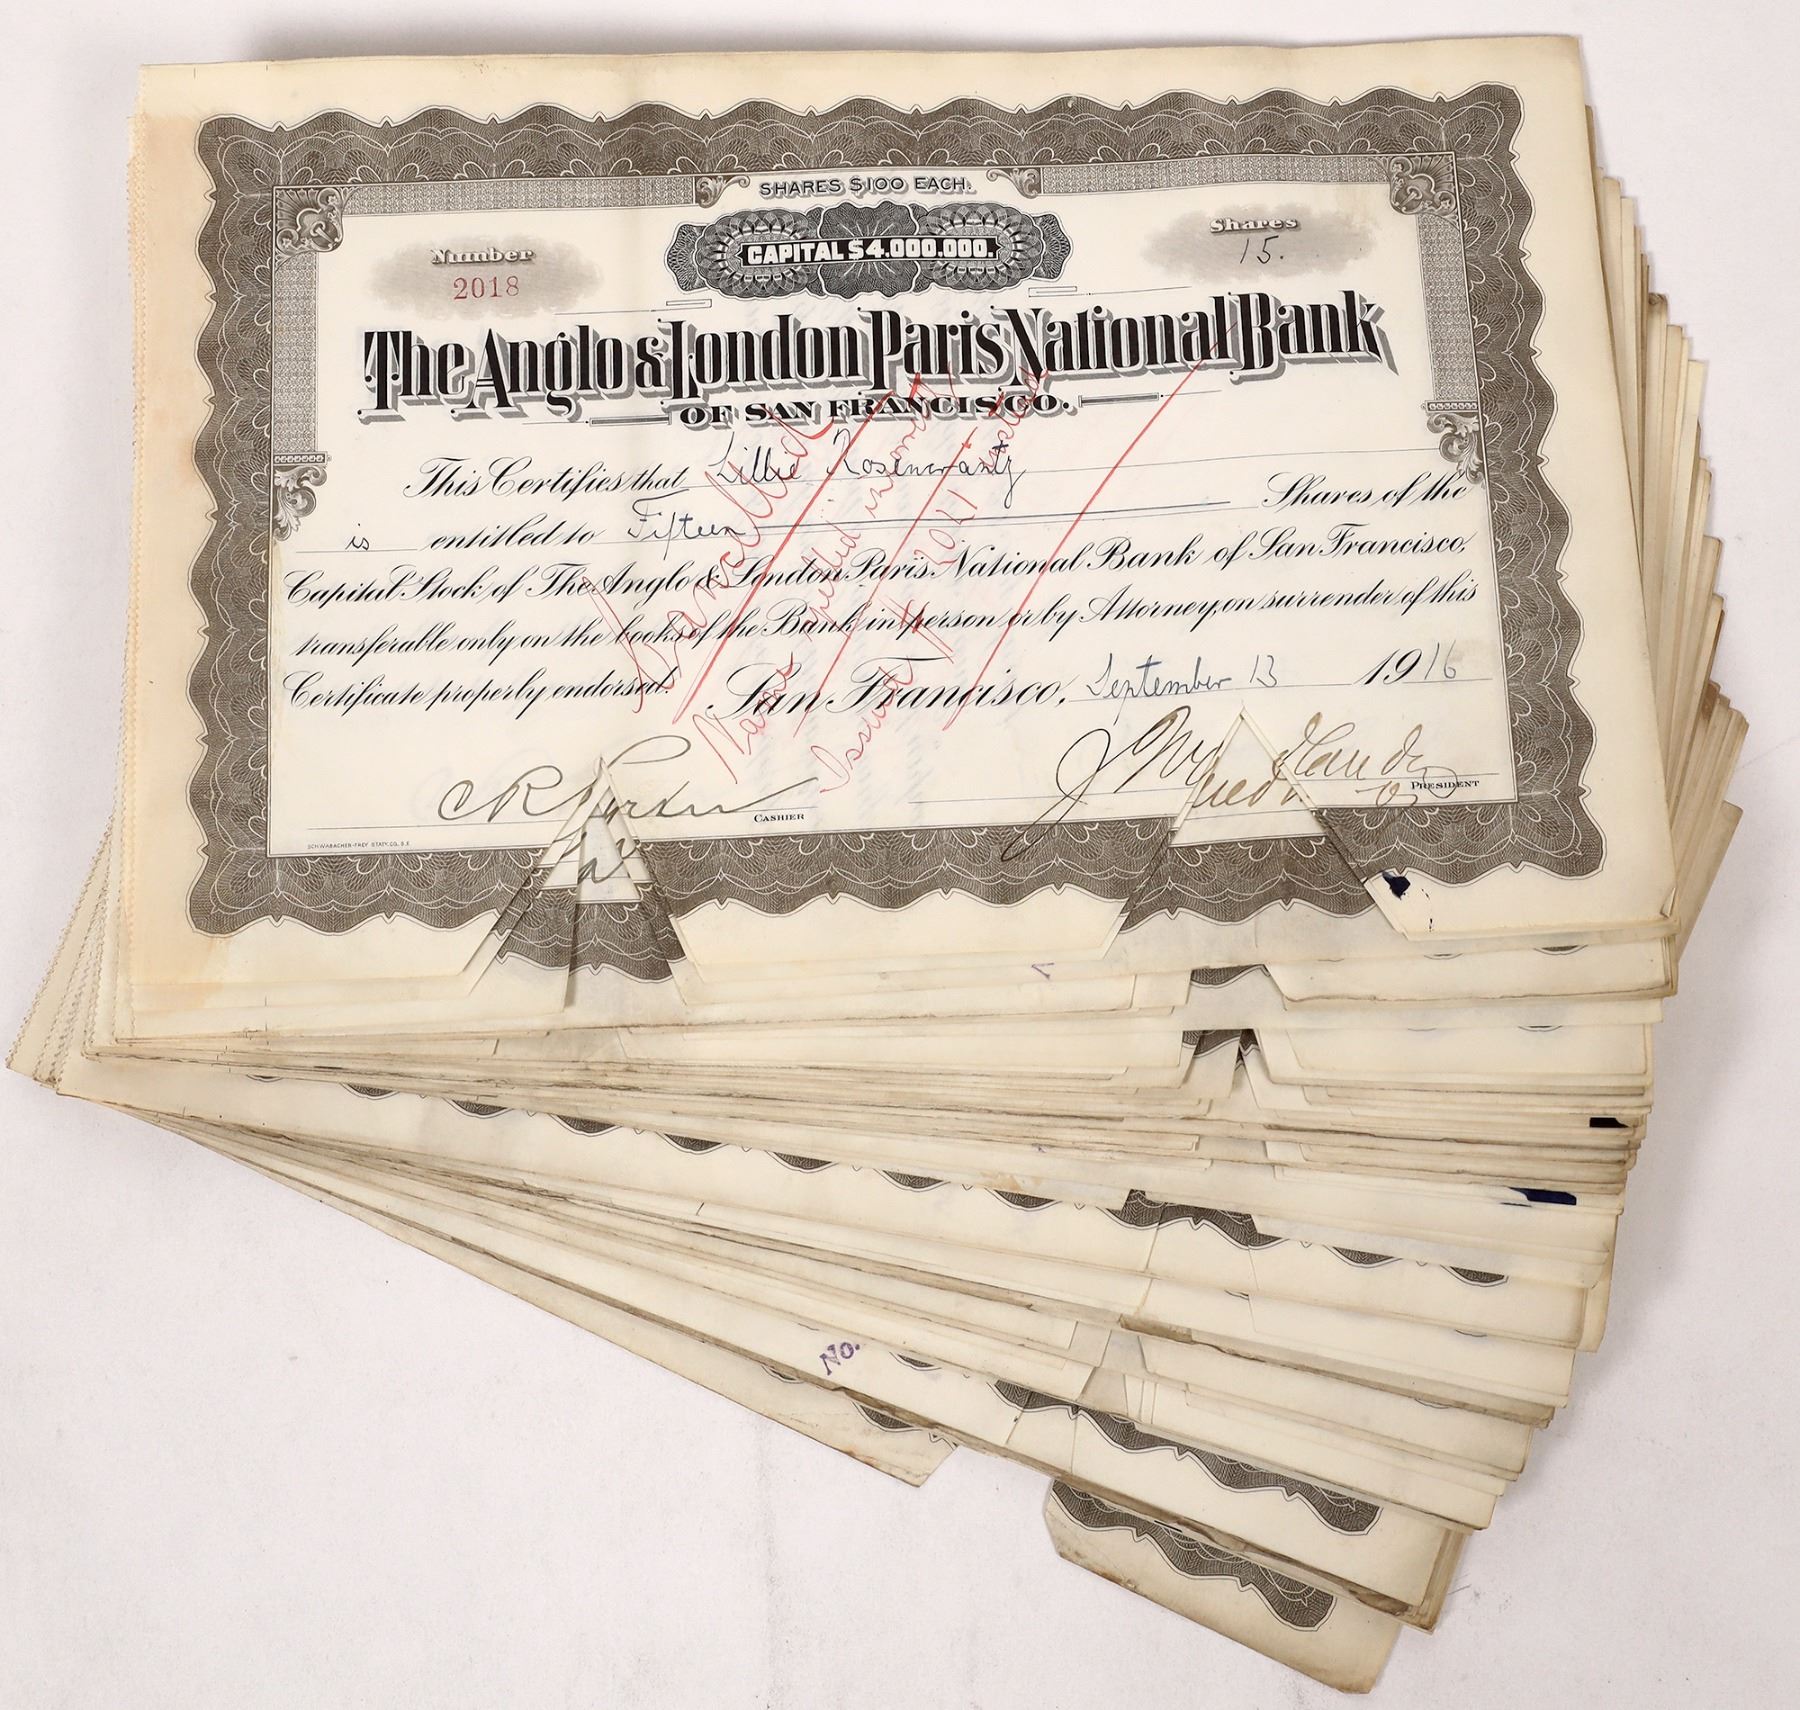 SHARES $100 EACH.
CAPITAL $4.000.000.
Number
2018
Shares
15.
The Anglo & London Paris National Bank
OF SAN FRANCISCO.
This Certifies that Lillie Rosencrantz
is entitled to Fifteen Shares of the
Capital Stock of The Anglo & London Paris National Bank of San Francisco,
transferable only on the books of the Bank in person or by Attorney, on surrender of this
Certificate properly endorsed.
San Francisco, September 13 1916
Cancelled
Name spelled incorrect
Issued # 2041 instead
CASHIER
PRESIDENT
SCHWABACHER-FREY STAT'Y. CO., S.F.
No.